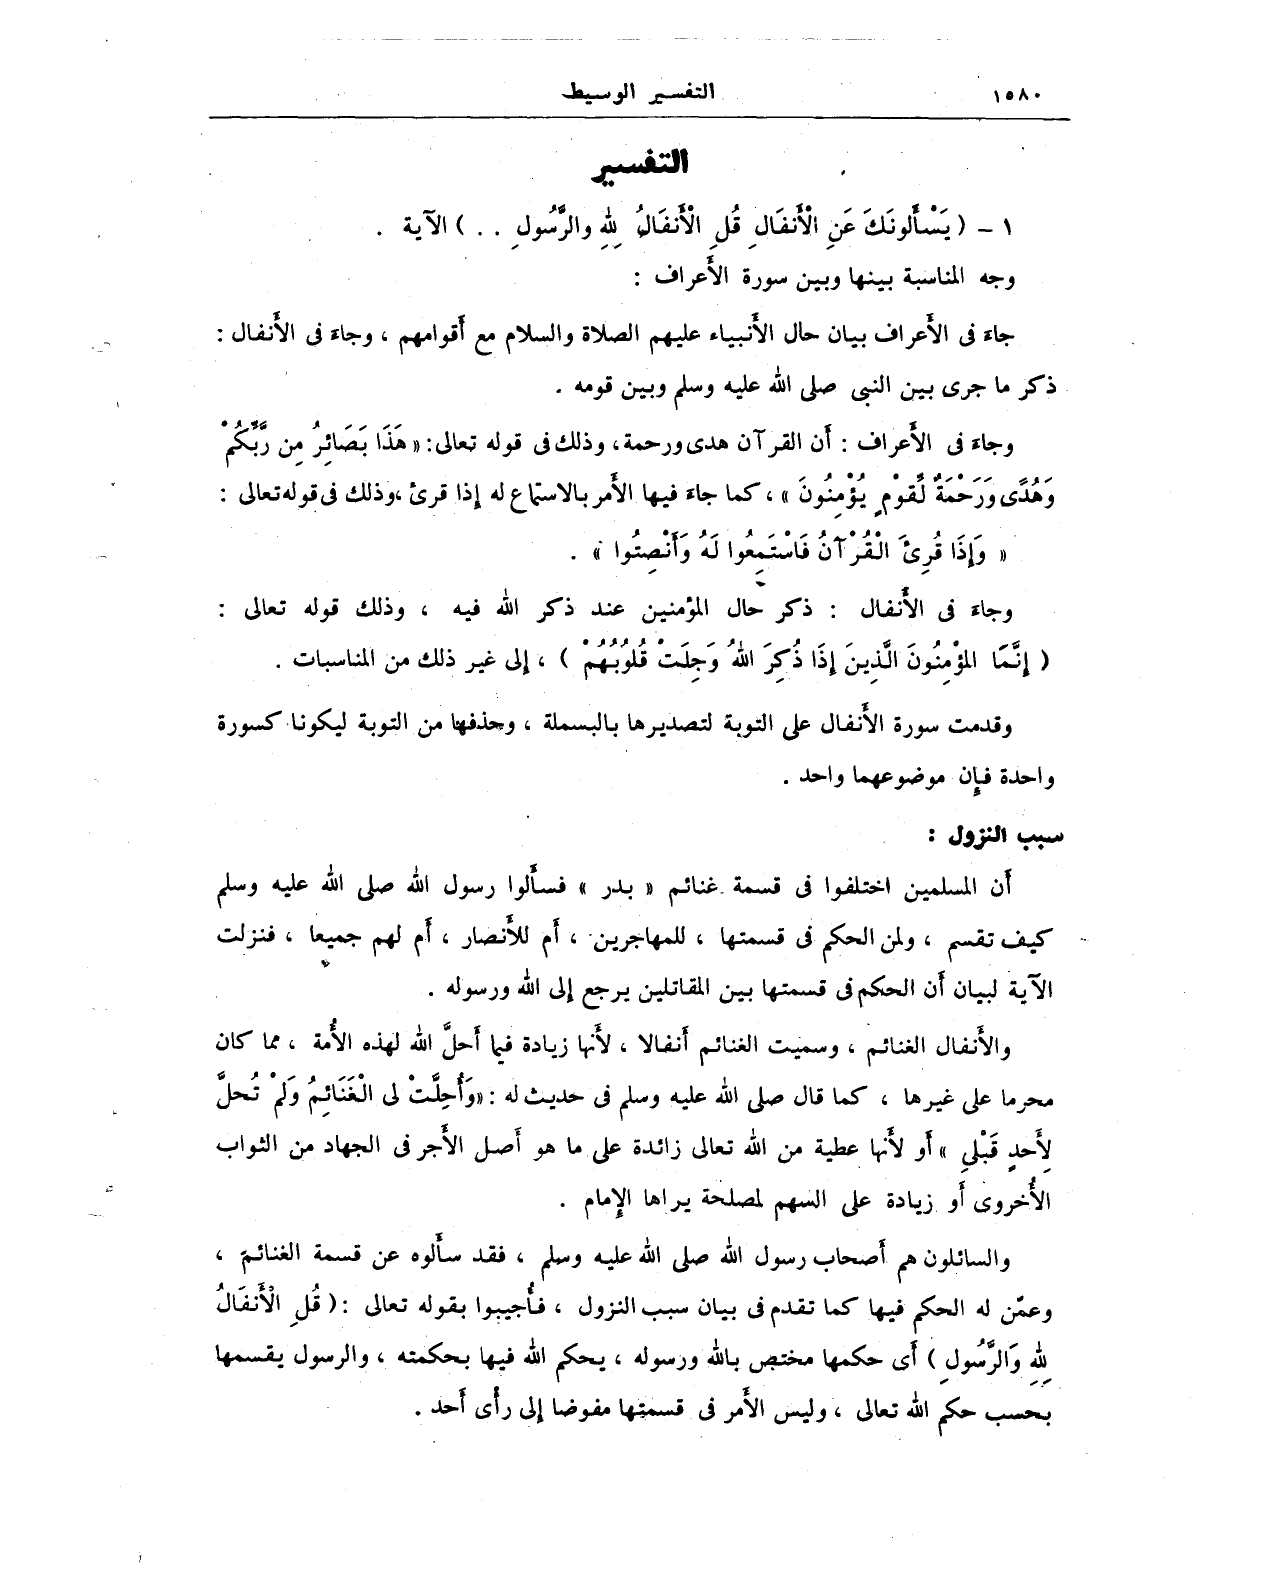 ١٥٨٠ التفسير الوسيط
التفسير
١ – ( يَسْأَلونَكَ عَنِ الْأَنفَالِ قُلِ الْأَنفَالُ لِلهِ والرَّسُولِ . . ) الآية .
وجه المناسبة بينها وبين سورة الأَعراف :
جاءَ فى الأَعراف بيان حال الأَنبياء عليهم الصلاة والسلام مع أَقوامهم ، وجاءَ فى الأَنفال :
ذكر ما جرى بين النبى صلى الله عليه وسلم وبين قومه .
وجاءَ فى الأَعراف : أَن القرآن هدى ورحمة ، وذلك فى قوله تعالى : « هَذَا بَصَائِرُ مِن رَّبِّكُمْ
وَهُدًى وَرَحْمَةٌ لِّقَوْمٍ يُؤْمِنُونَ » ، كما جاءَ فيها الأَمر بالاستماع له إِذا قرئ ، وذلك فى قوله تعالى :
« وَإِذَا قُرِئَ الْقُرْآنُ فَاسْتَمِعُوا لَهُ وَأَنْصِتُوا » .
وجاءَ فى الأَنفال : ذكر حال المؤمنين عند ذكر الله فيه ، وذلك قوله تعالى :
( إِنَّمَا المؤْمِنُونَ الَّذِينَ إِذَا ذُكِرَ اللهُ وَجِلَتْ قُلُوبُهُمْ ) ، إِلى غير ذلك من المناسبات .
وقدمت سورة الأَنفال على التوبة لتصديرها بالبسملة ، وحذفها من التوبة ليكونا كسورة
واحدة فإِن موضوعهما واحد .
سبب النزول :
أَن المسلمين اختلفوا فى قسمة غنائم « بدر » فسأَلوا رسول الله صلى الله عليه وسلم
كيف تقسم ، ولمن الحكم فى قسمتها ، للمهاجرين ، أَم للأَنصار ، أَم لهم جميعا ، فنزلت
الآية لبيان أَن الحكم فى قسمتها بين المقاتلين يرجع إِلى الله ورسوله .
والأَنفال الغنائم ، وسميت الغنائم أَنفالا ، لأَنها زيادة فيما أَحلَّ الله لهذه الأُمة ، مما كان
محرما على غيرها ، كما قال صلى الله عليه وسلم فى حديث له : «وَأُحِلَّتْ لى الْغَنَائِمُ وَلَمْ تُحلَّ
لِأَحدٍ قَبْلِى » أَو لأَنها عطية من الله تعالى زائدة على ما هو أَصل الأَجر فى الجهاد من الثواب
الأُخروى أَو زيادة على السهم لمصلحة يراها الإِمام .
والسائلون هم أَصحاب رسول الله صلى الله عليه وسلم ، فقد سأَلوه عن قسمة الغنائم ،
وعمَّن له الحكم فيها كما تقدم فى بيان سبب النزول ، فأُجيبوا بقوله تعالى : ( قُلِ الْأَنفَالُ
لِلهِ وَالرَّسُولِ ) أَى حكمها مختص بالله ورسوله ، يحكم الله فيها بحكمته ، والرسول يقسمها
بحسب حكم الله تعالى ، وليس الأَمر فى قسمتها مفوضا إِلى رأْى أَحد .